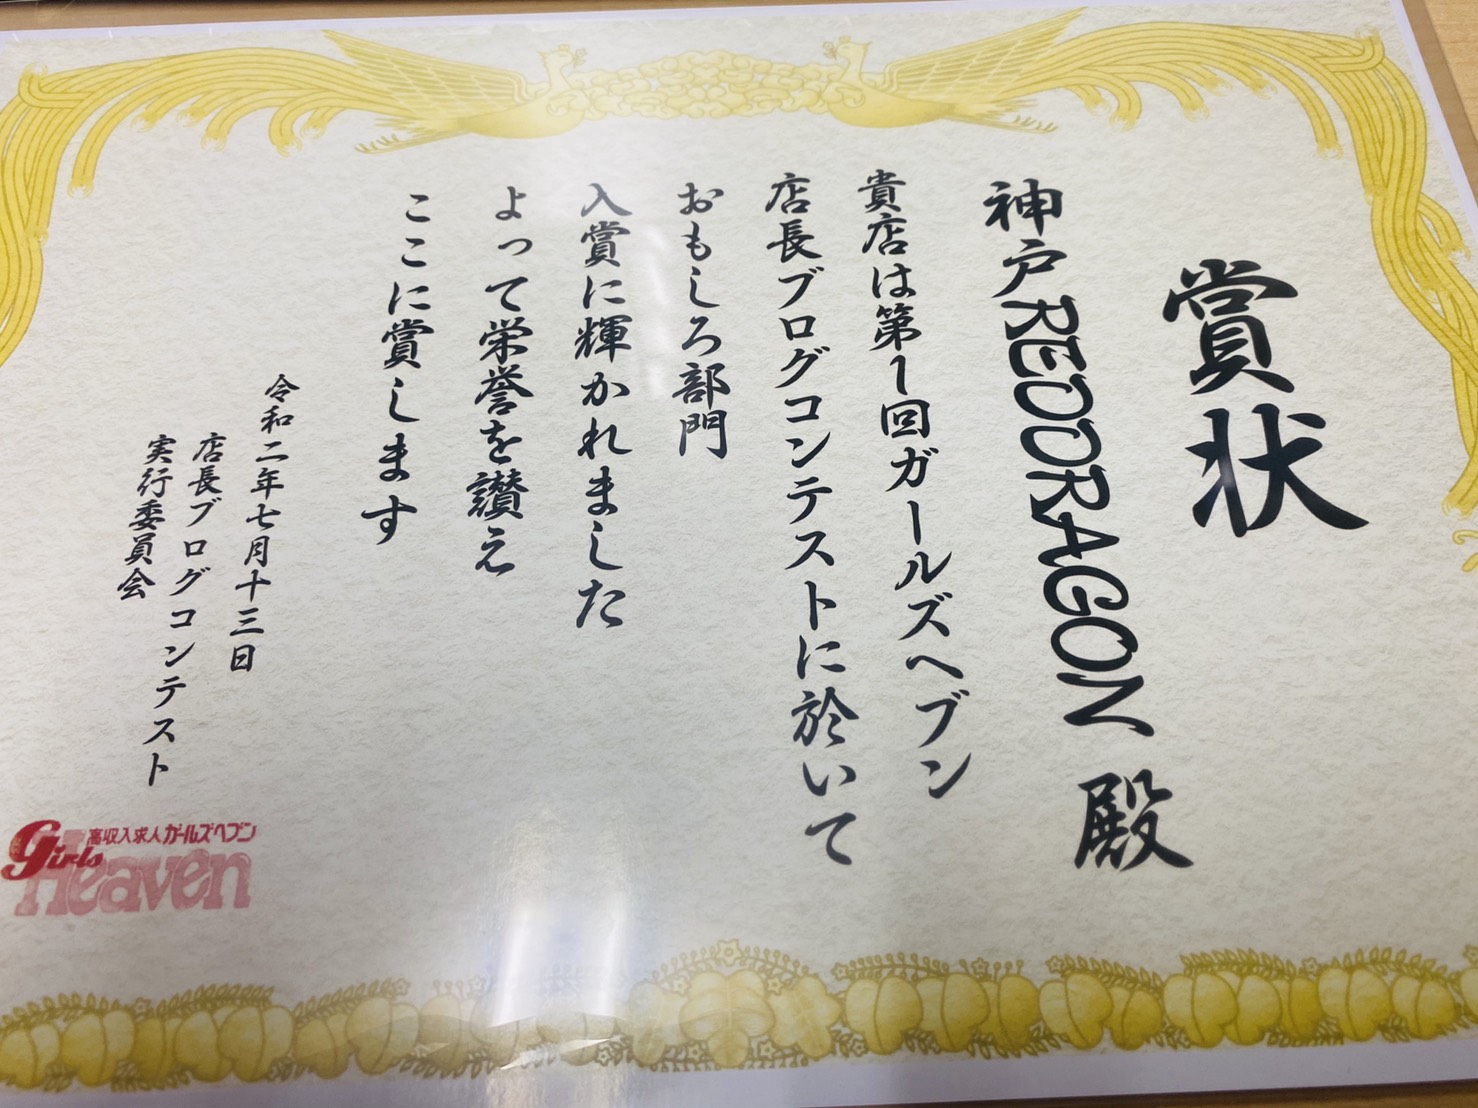 賞状
神戸REDDRAGON 殿
貴店は第1回ガールズヘブン
店長ブログコンテストに於いて
おもしろ部門
入賞に輝かれました
よって栄誉を讃え
ここに賞します
令和二年七月十三日
店長ブログコンテスト
実行委員会
高収入求人ガールズヘブン
Girls
Heaven